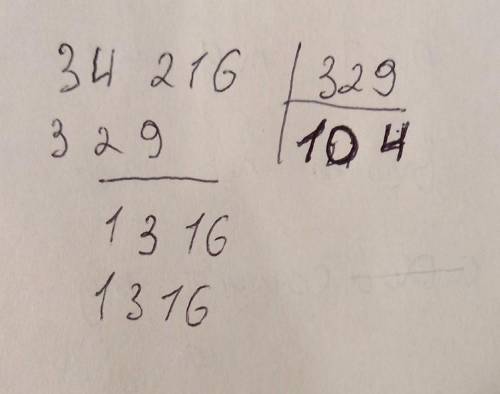 34 216 329
3 2 9 10 4
1 3 16
1 3 16